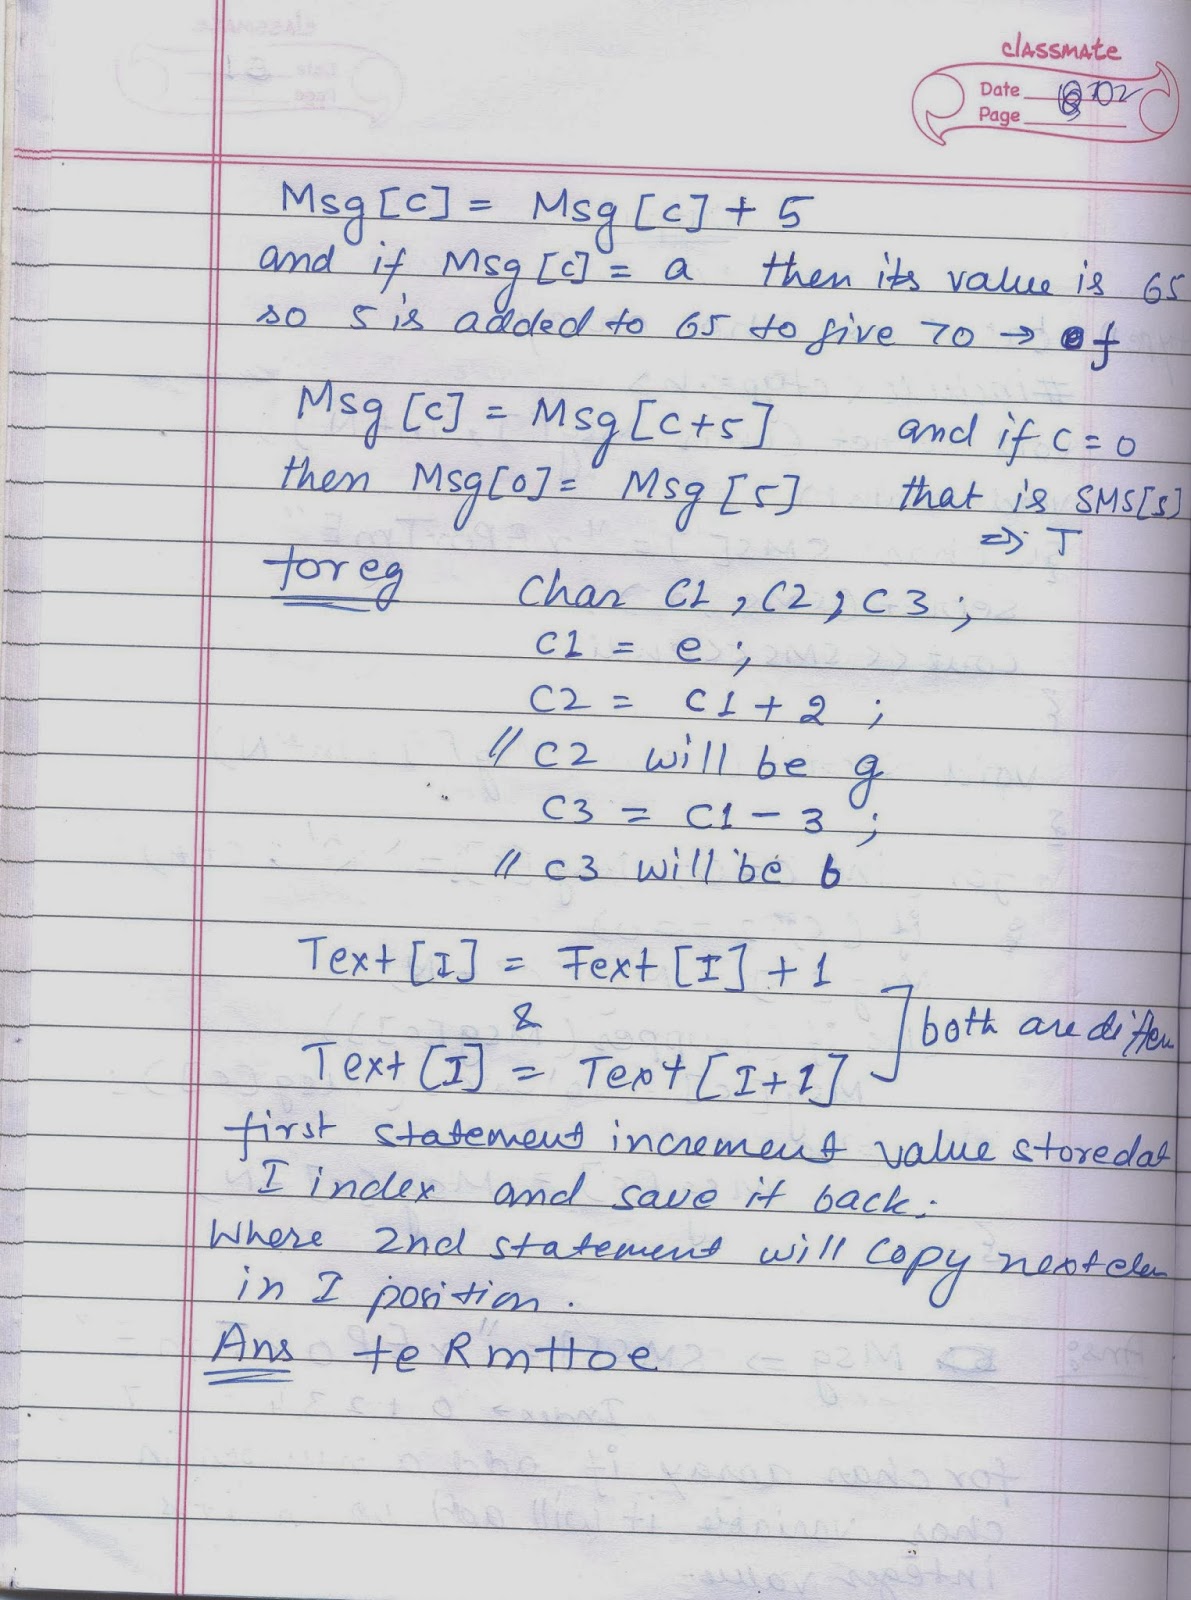 classmate
Date
Page
Msg[c] = Msg[c] + 5
and if Msg[c] = a then its value is 65
so 5 is added to 65 to give 70 → f
Msg[c] = Msg[c+5] and if c = 0
then Msg[0] = Msg[5] that is SMS[5]
⇒ T
for eg Char C1, C2, C3;
C1 = e;
C2 = C1 + 2 ;
// C2 will be g
C3 = C1 - 3 ;
// C3 will be b
Text[I] = Text[I] + 1
&
Text[I] = Text[I+1]
both are differ
first statement increment value stored at
I index and save it back.
Where 2nd statement will copy next
in I position.
Ans teRmttoe